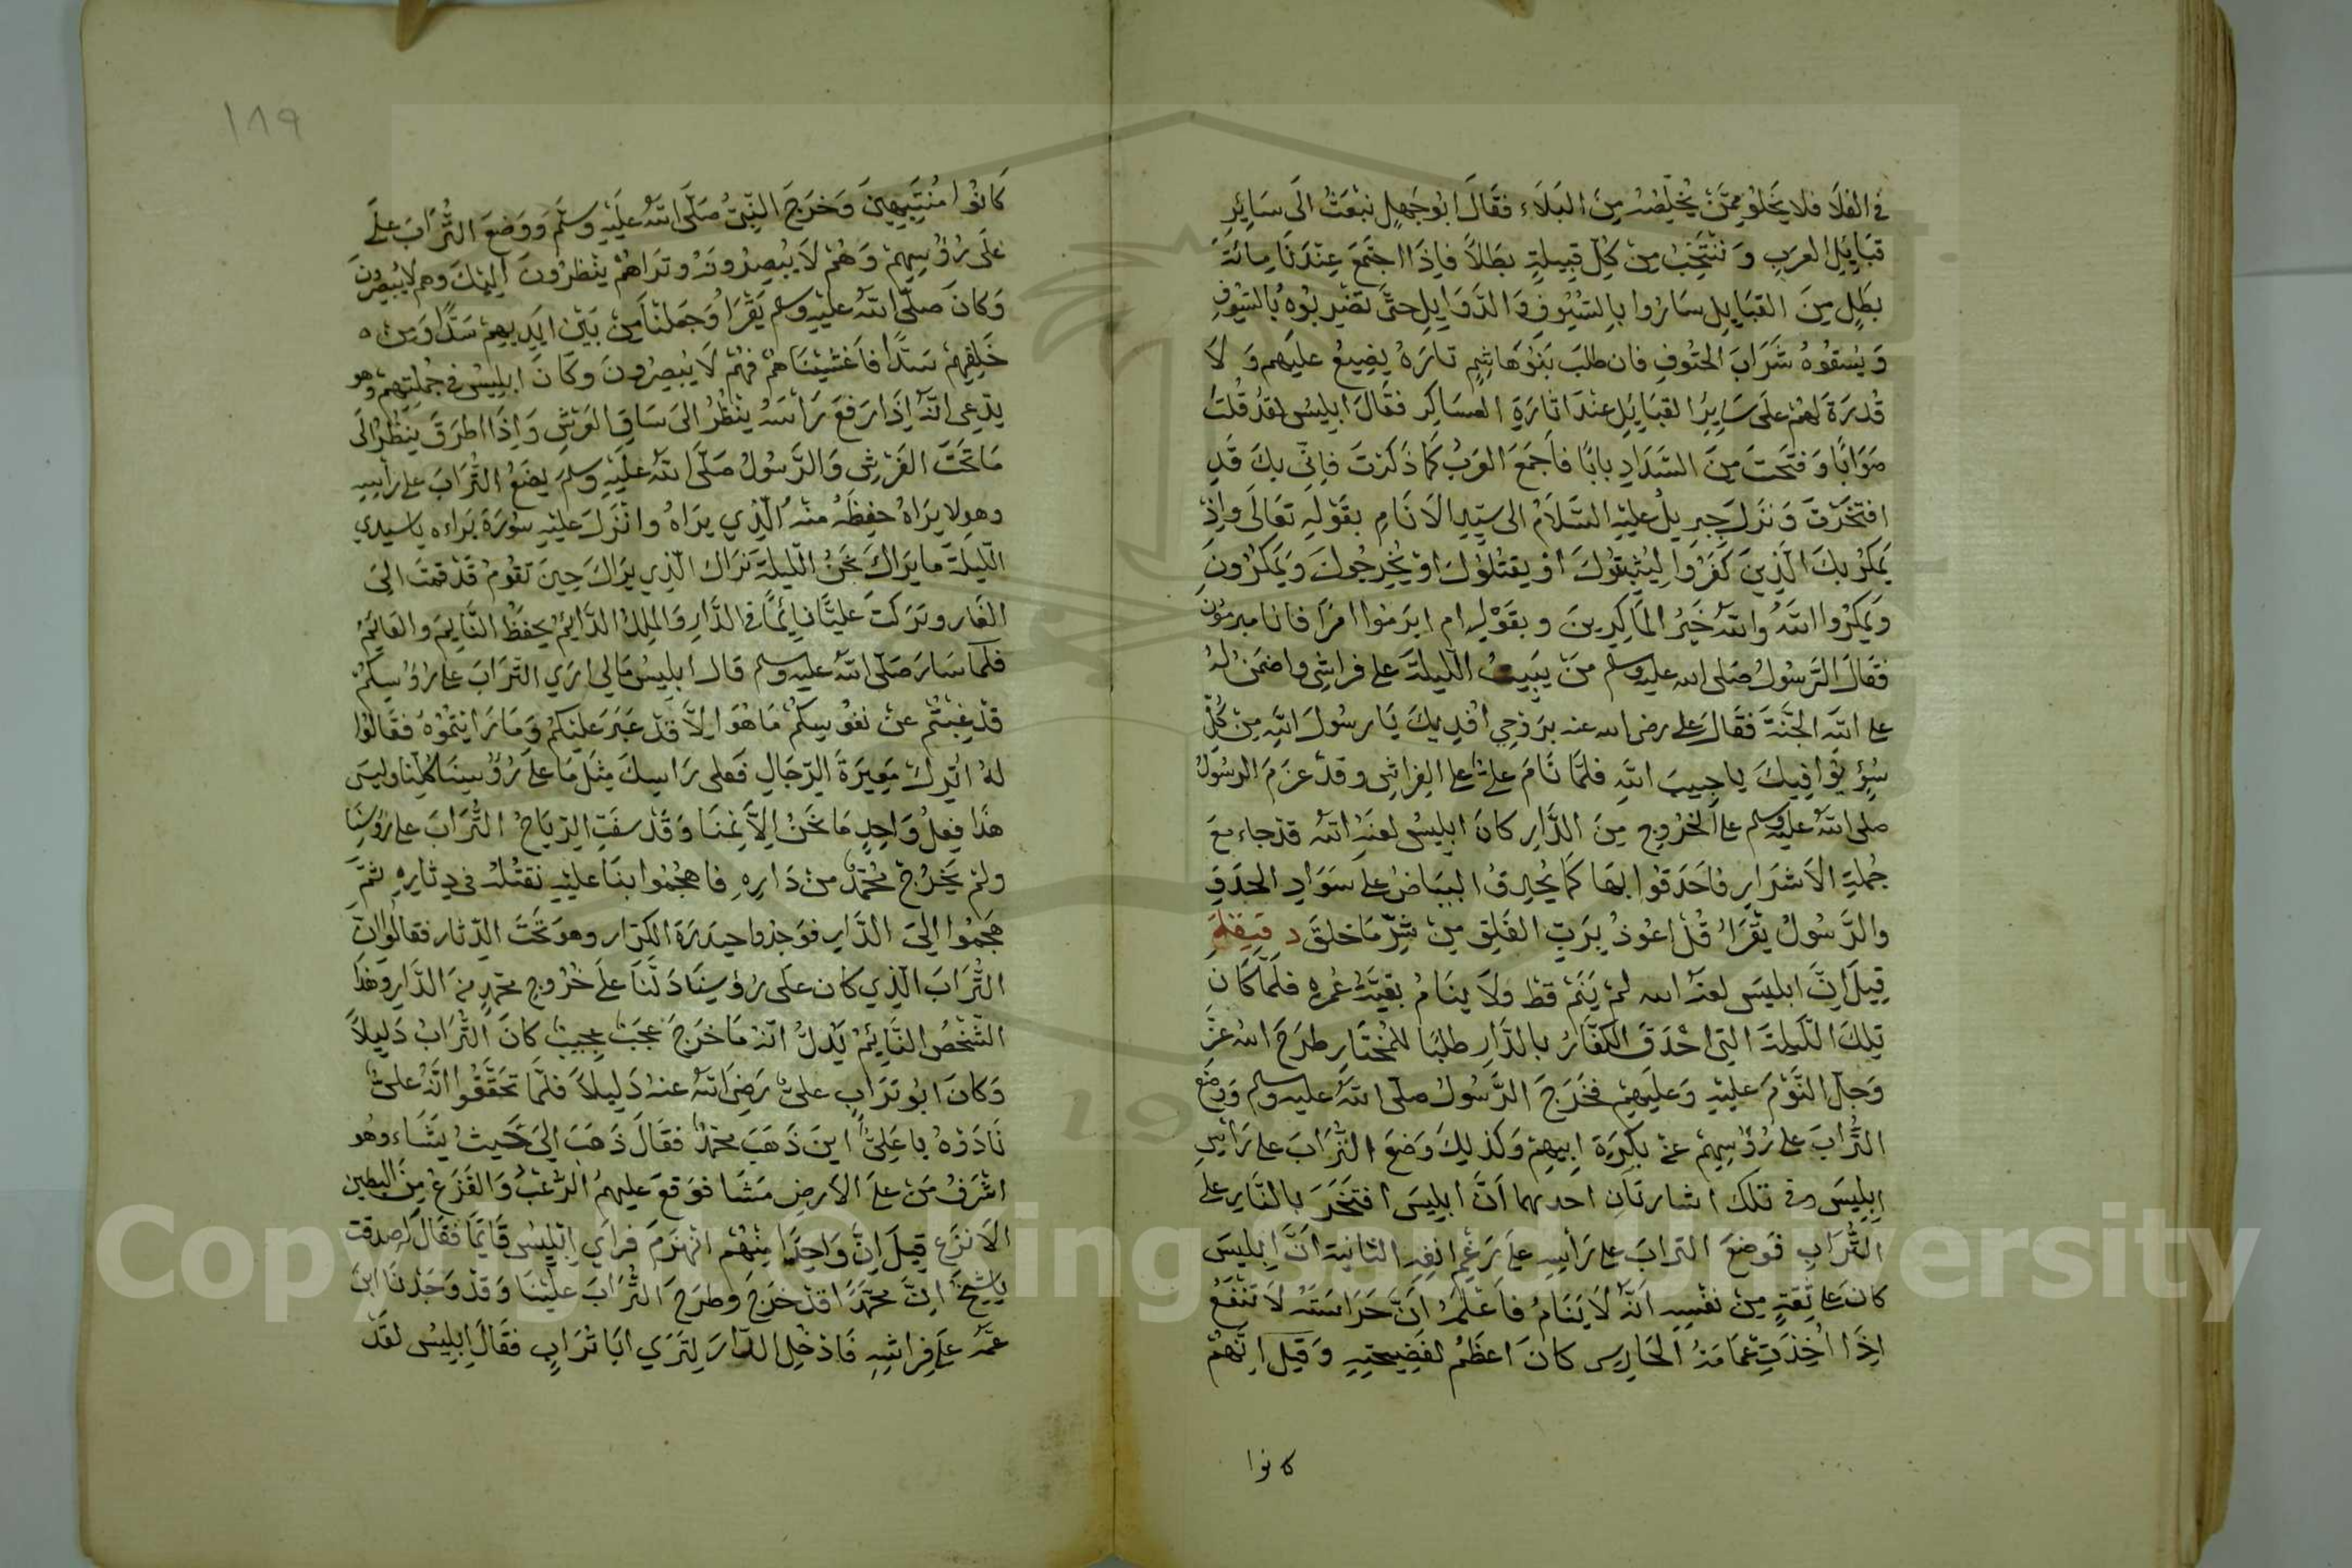 في الفلا فلا يخلو ممن يخلصه من البلاء فقال ابو جهل نبعث الى سائر
قبايل العرب و ننتخب من كل قبيلة بطلا فاذا اجتمع عندنا مائة
بطل من القبايل ساروا بالسيوف والذوابل حتى تضربوه بالسيوف
ويسقوه شراب الحتوف فان طلب بنو هاشم ثاره يضيع عليهم و لا
قدرة لهم على ساير القبايل عند اثارة العساكر فقال ابليس لقد قلت
صوابا و فتحت من السداد بابا فاجمع العرب كما ذكرت فاني بك قد
افتخرت و نزل جبريل عليه السلام الى سيد الانام بقوله تعالى واذ
يمكر بك الذين كفروا ليثبتوك او يقتلوك او يخرجوك ويمكرون
ويمكروا الله والله خير الماكرين و بقوله ام ابرموا امرا فانا مبرمون
فقال الرسول صلى الله عليه وسلم من يبيت الليلة على فراشي واضمن له
على الله الجنة فقال علي رضى الله عنه بروحي افديك يا رسول الله من كل
سوء يوافيك يا حبيب الله فلما نام علي على الفراش وقد عزم الرسول
صلى الله عليه وسلم على الخروج من الدار كان ابليس لعنه الله قد جاء مع
جملة الاشرار فاحدقوا بها كما يحدق البياض على سواد الحدق
والرسول يقرا قل اعوذ برب الفلق من شر ما خلق دقيقة
قيل ان ابليس لعنه الله لم ينم قط ولا ينام بقية عمره فلما كان
تلك الليلة التي احدق الكفار بالدار طلبا للمختار طرح الله عز
وجل النوم عليه وعليهم فخرج الرسول صلى الله عليه وسلم ووضع
التراب على رؤسهم عن بكرة ابيهم وكذلك وضع التراب على راس
ابليس وفي تلك اشارتان احديهما ان ابليس افتخر بالنار على
التراب فوضع التراب على راسه على رغم انفه الثانية ان ابليس
كان على ثقة من نفسه انه لا ينام فاعلم ان حراسته لا تنفع
اذا اخذت عمامة الحارس كان اعظم لفضيحته وقيل انهم
كانوا
١٨٩
كانوا منتبهين وخرج النبي صلى الله عليه وسلم ووضع التراب على
على رؤسهم وهم لا يبصرونه وتراهم ينظرون اليك وهم لا يبصرون
وكان صلى الله عليه وسلم يقرا وجعلنا من بين ايديهم سدا ومن
خلفهم سدا فاغشيناهم فهم لا يبصرون وكان ابليس في جملتهم وهو
يدعى انه اذا رفع راسه ينظر الى ساق العرش واذا اطرق ينظر الى
ما تحت الفرش والرسول صلى الله عليه وسلم يضع التراب على راسه
وهو لا يراه حفظه منه الذي يراه وانزل عليه سورة براءه يا سيدي
الليلة ما يراك نحن الليلة نراك الذي يراك حين تقوم قد قمت الى
الغار وتركت عليا نائما في الدار والملك الدايم يحفظ النايم والقايم
فلما سار صلى الله عليه وسلم قال ابليس مالي ارى التراب على رؤسكم
قد غبتم عن نفوسكم ما هو الا قد عبر عليكم وما رايتموه فقالوا
له اترك معيرة الرجال فعلى راسك مثل ما على رؤسينا كلنا وليس
هذا فعل واحد ما نحن الا نمنا وقد سفت الرياح التراب على رؤسنا
ولم يخرج محمد من داره فاهجموا بنا عليه نقتله في دثاره ثم
هجموا الى الدار فوجدوا حيدرة الكرار وهو تحت الدثار فقالوا ان
التراب الذي كان على رؤسينا دلنا على خروج محمد من الدار وهذا
الشخص النايم يدل انه ما خرج عجب عجيب كان التراب دليلا
وكان ابو تراب علي رضي الله عنه دليلا فلما تحققوا انه علي
نادوه يا علي اين ذهب محمد فقال ذهب الى حيث يشاء وهو
اشرف من على الارض مشا فوقع عليهم الرعب والفزع من البطين
الانزع قيل ان واحدا منهم انهزم فراي ابليس قايما فقال له صدقت
يا شيخ ان محمدا قد خرج وطرح التراب علينا وقد وجدنا ابن
عمه على فراشه فادخل الدار لترى ابا تراب فقال ابليس لقد
Copyright © King Saud University